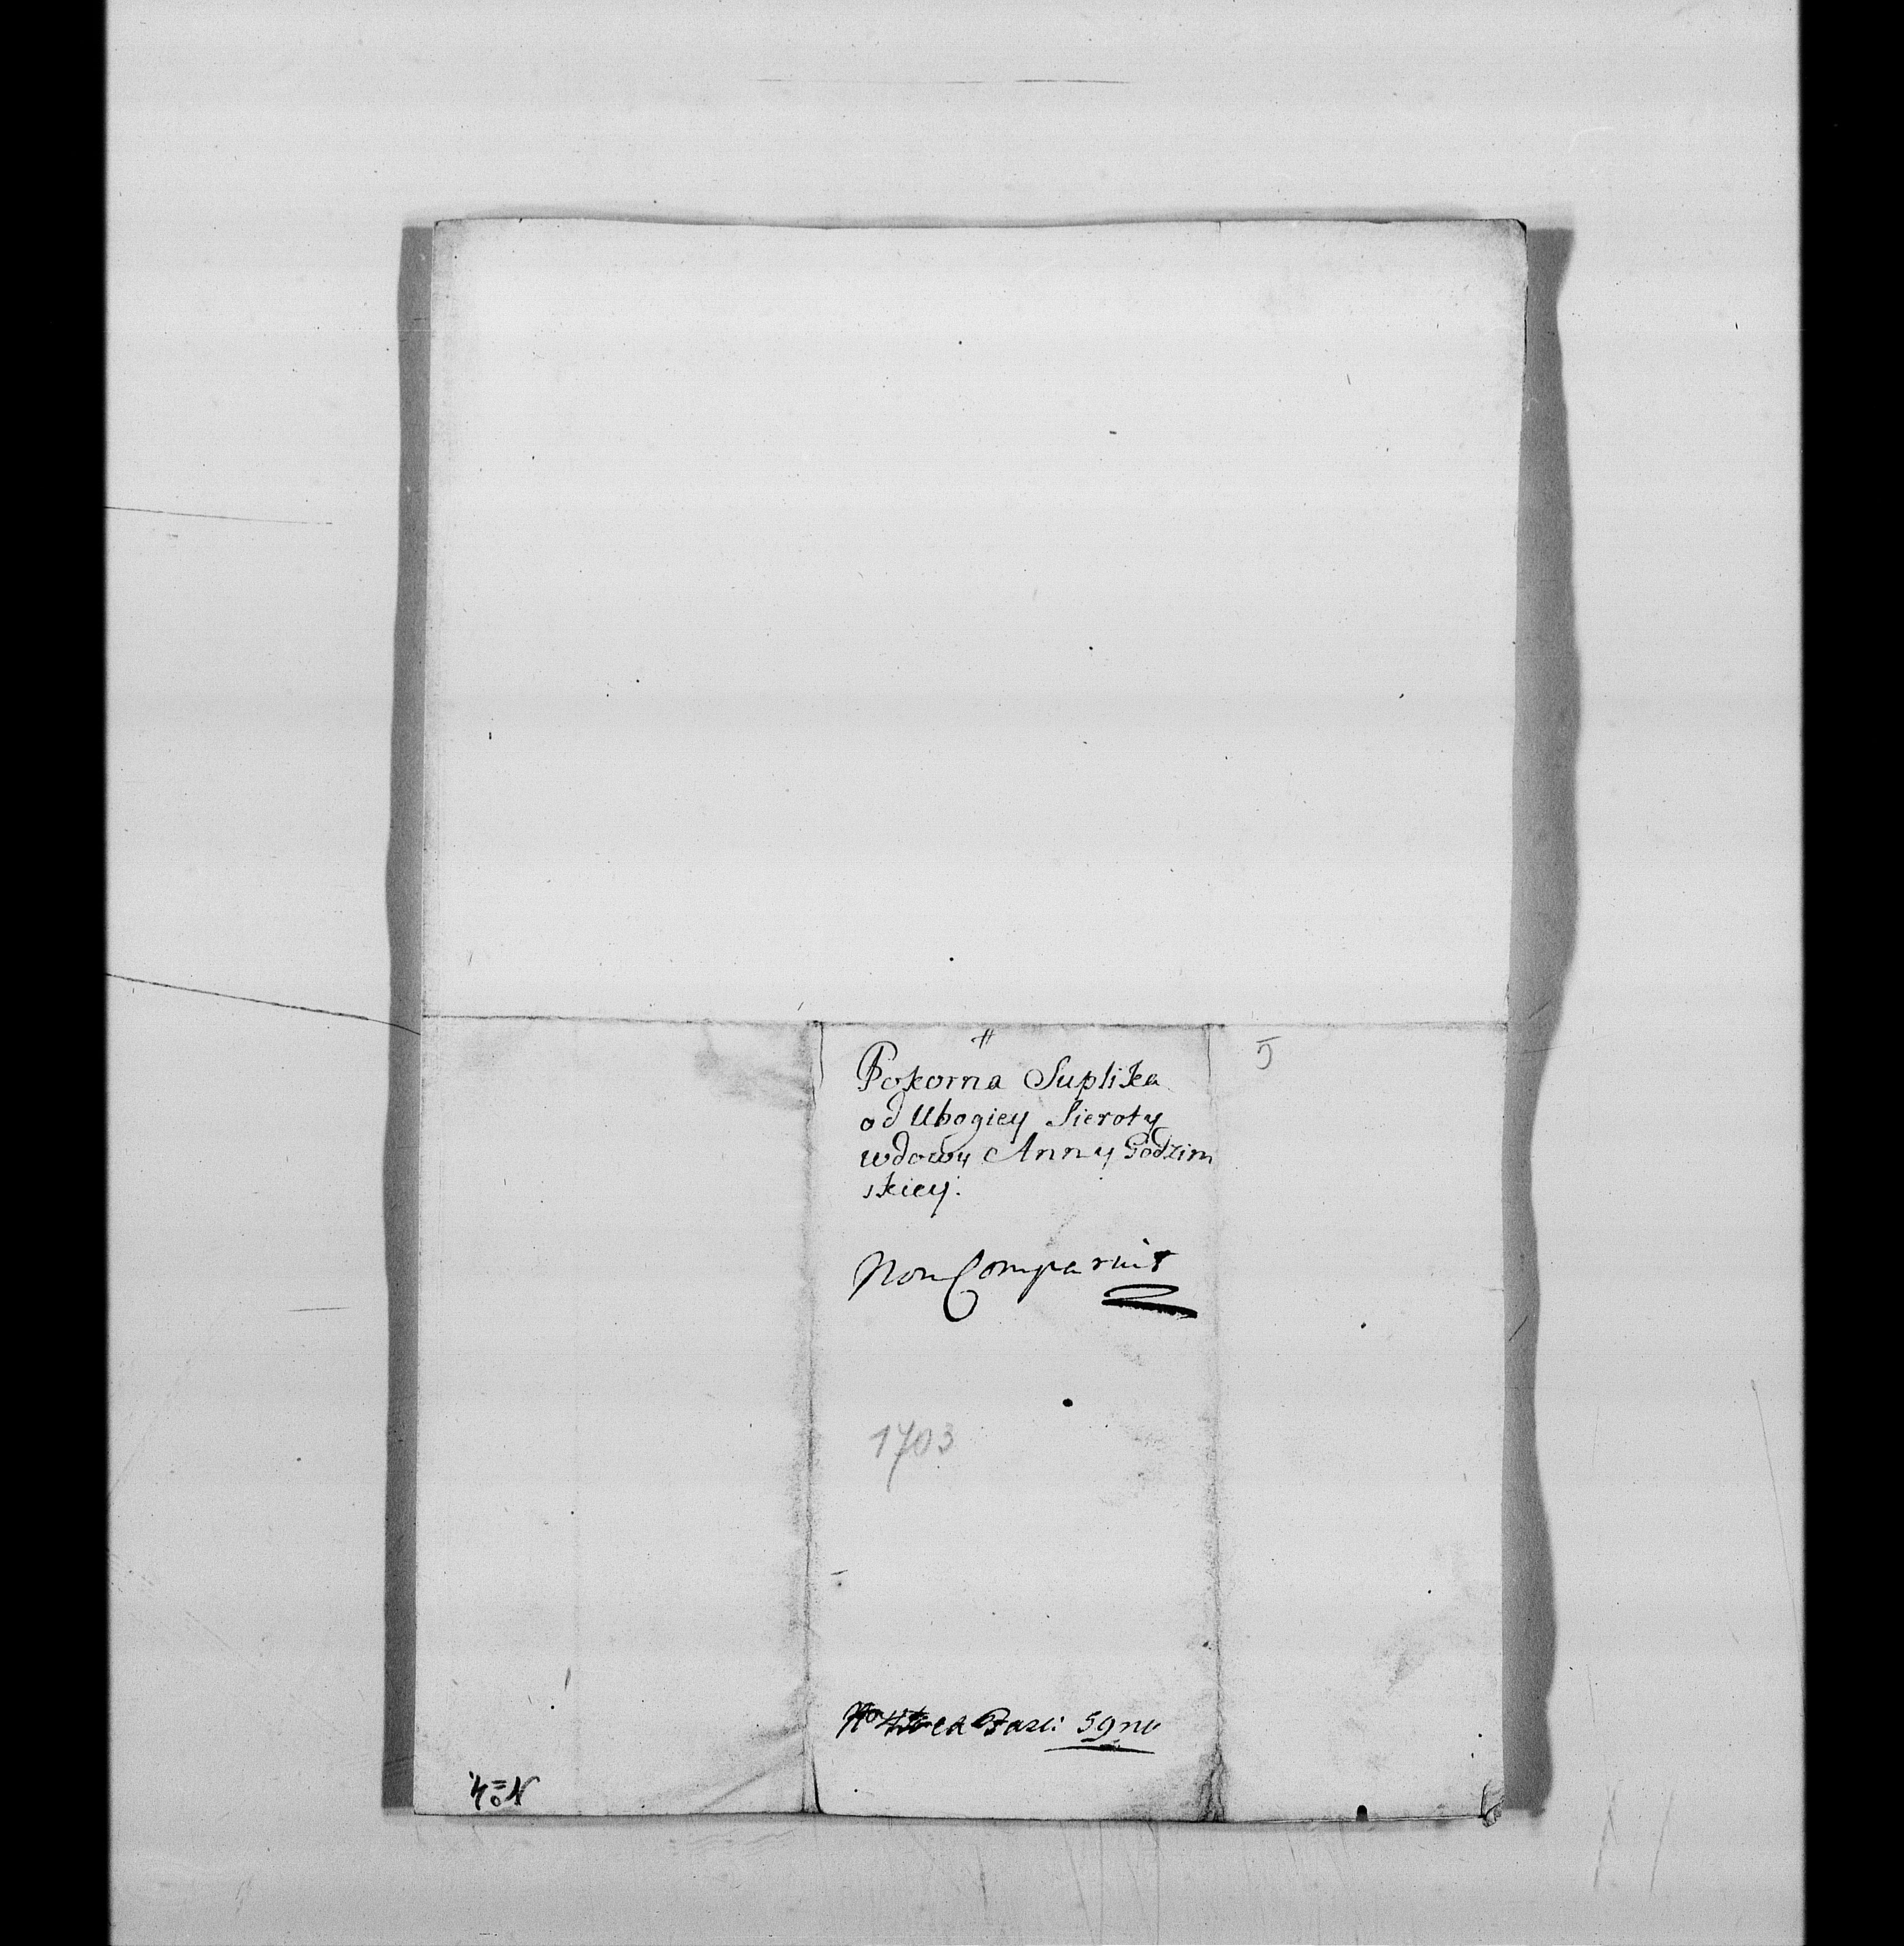 #
5
Pokorna Suplika
od Ubogiey Sieroty
wdowy Anny Godzim
skiey.
Non Comparuit
1703
ea Fasci 59no
N=o 4